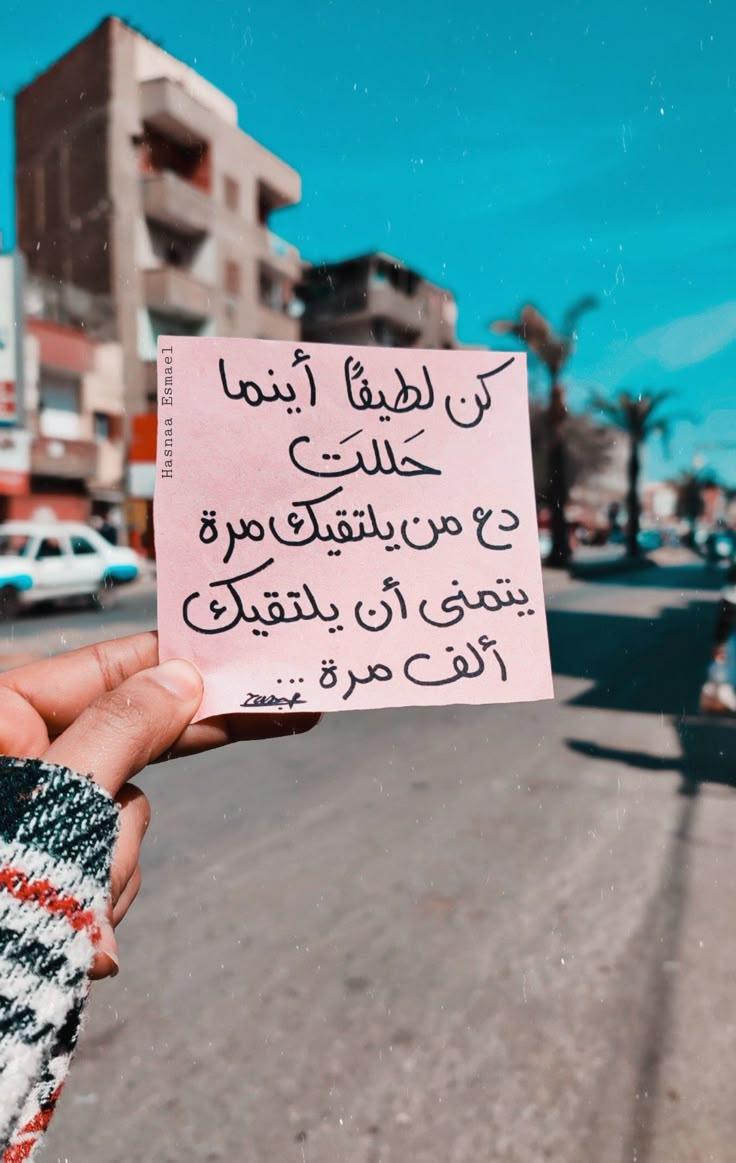 كن لطيفًا أينما
حَللتَ
دع من يلتقيك مرة
يتمنى أن يلتقيك
ألف مرة ...
Hasnaa Esmael